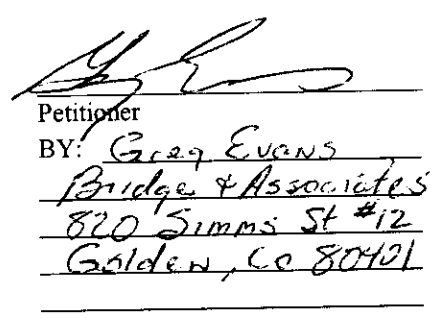 Petitioner
BY: Greg Evans
Bridge & Associates
820 Simms St #12
Golden, Co 80401